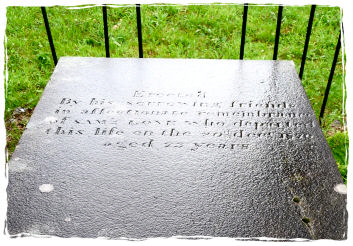 Erected
By his sorrowing friends
in affectionate remembrance
of SAML who departed
this life on the 20th Decr
aged 22 years